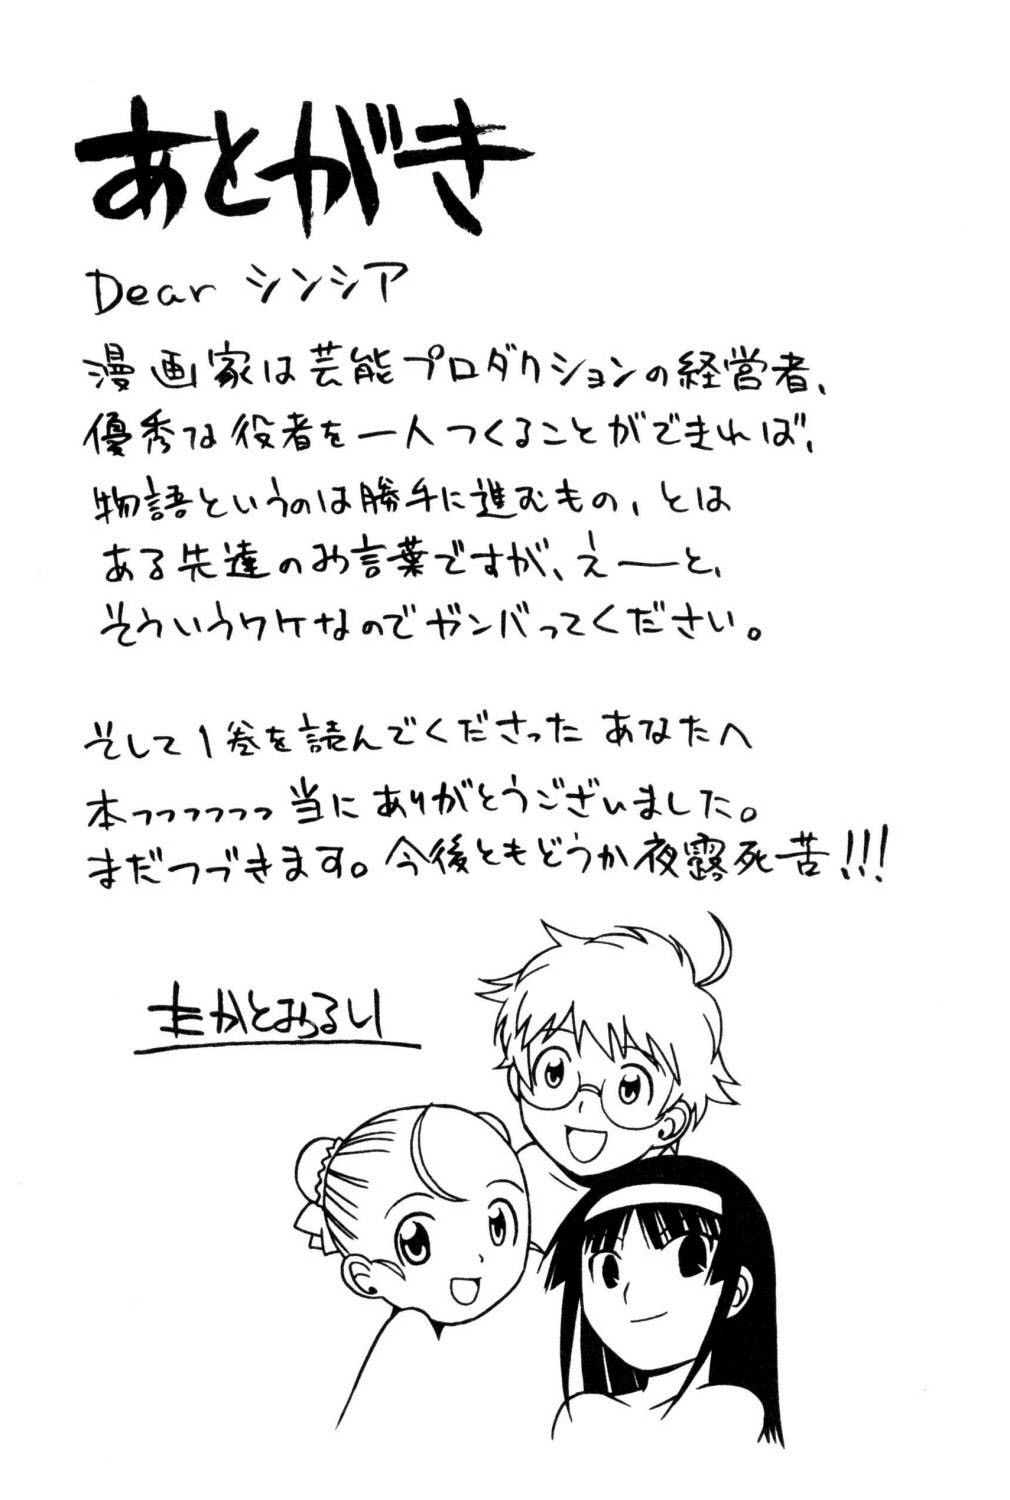 あとがき
Dear シンシア
漫画家は芸能プロダクションの経営者、
優秀な役者を一人つくることができれば、
物語というのは勝手に進むもの、とは
ある先達のお言葉ですが、えーと、
そういうワケなのでガンバってください。
そして1巻を読んでくださった あなたへ
本っっっっっっ当に ありがとうございました。
まだつづきます。今後ともどうか夜露死苦!!!
たかとおるい